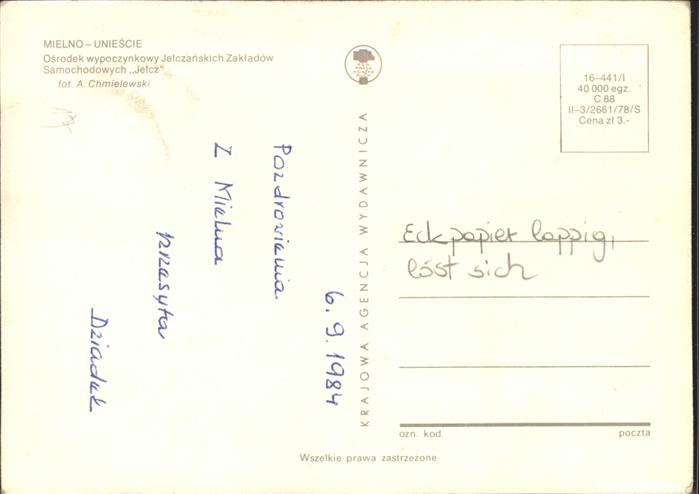 MIELNO – UNIEŚCIE
Ośrodek wypoczynkowy Jelczańskich Zakładów
Samochodowych „Jelcz"
fot. A. Chmielewski
16–441/I
40 000 egz.
C 88
II–3/2661/78/S
Cena zł 3.-
KRAJOWA AGENCJA WYDAWNICZA
6. 9. 1984
Pozdrowienia
z Mielna
przesyła
Dziadek
Eckpapier lappig,
löst sich
ozn. kod. poczta
Wszelkie prawa zastrzeżone